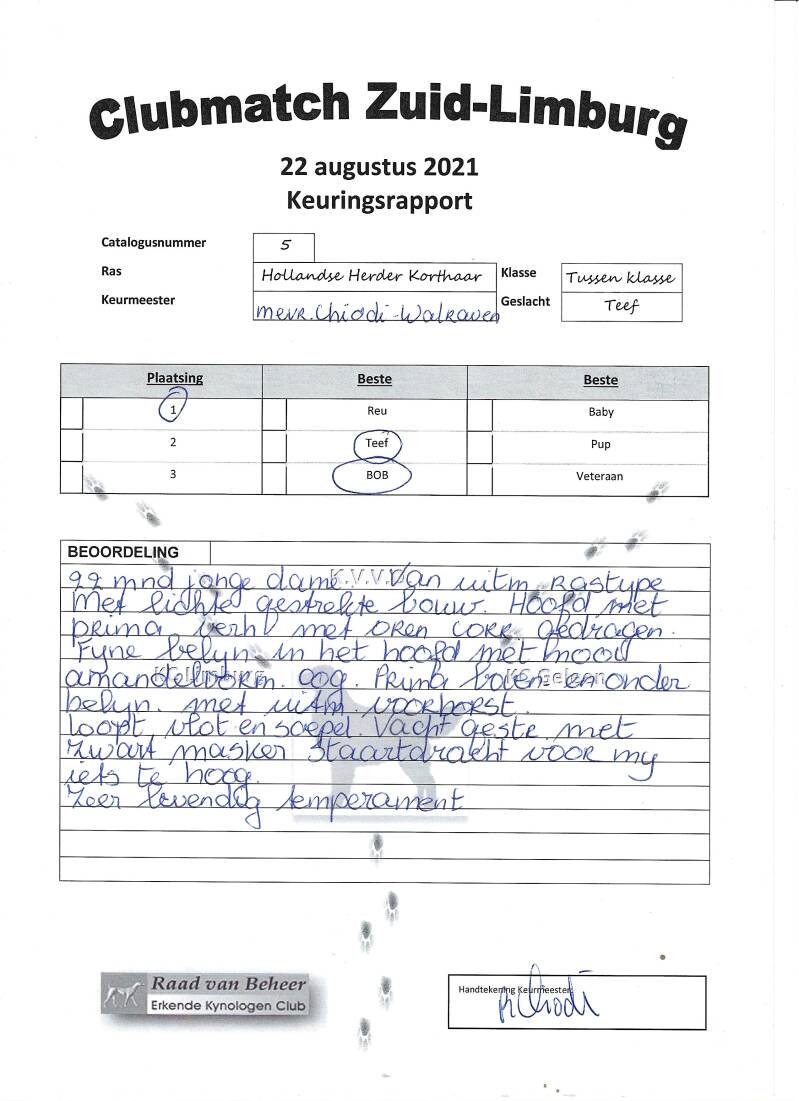 Clubmatch Zuid-Limburg
22 augustus 2021
Keuringsrapport
Catalogusnummer 5
Ras Hollandse Herder Korthaar Klasse Tussen klasse
Keurmeester mevr. Chiodi-Walraven Geslacht Teef
Plaatsing Beste Beste
1 Reu Baby
2 Teef Pup
3 BOB Veteraan
BEOORDELING
22 mnd jonge dame. Van uitm rastype
Met lichte gestrekte bouw. Hoofd met
prima verh met oren corr gedragen.
Fyne belyn. in het hoofd met mooi
amandelvorm. oog. Prima boven en onder
belyn. met uitm voorborst.
loopt vlot en soepel. Vacht geste. met
zwart masker staartdracht voor my
iets te hoog.
Zeer levendig temperament
K.V.V.
KC Limburg KC Geleen
Raad van Beheer
Erkende Kynologen Club
Handtekening Keurmeester: